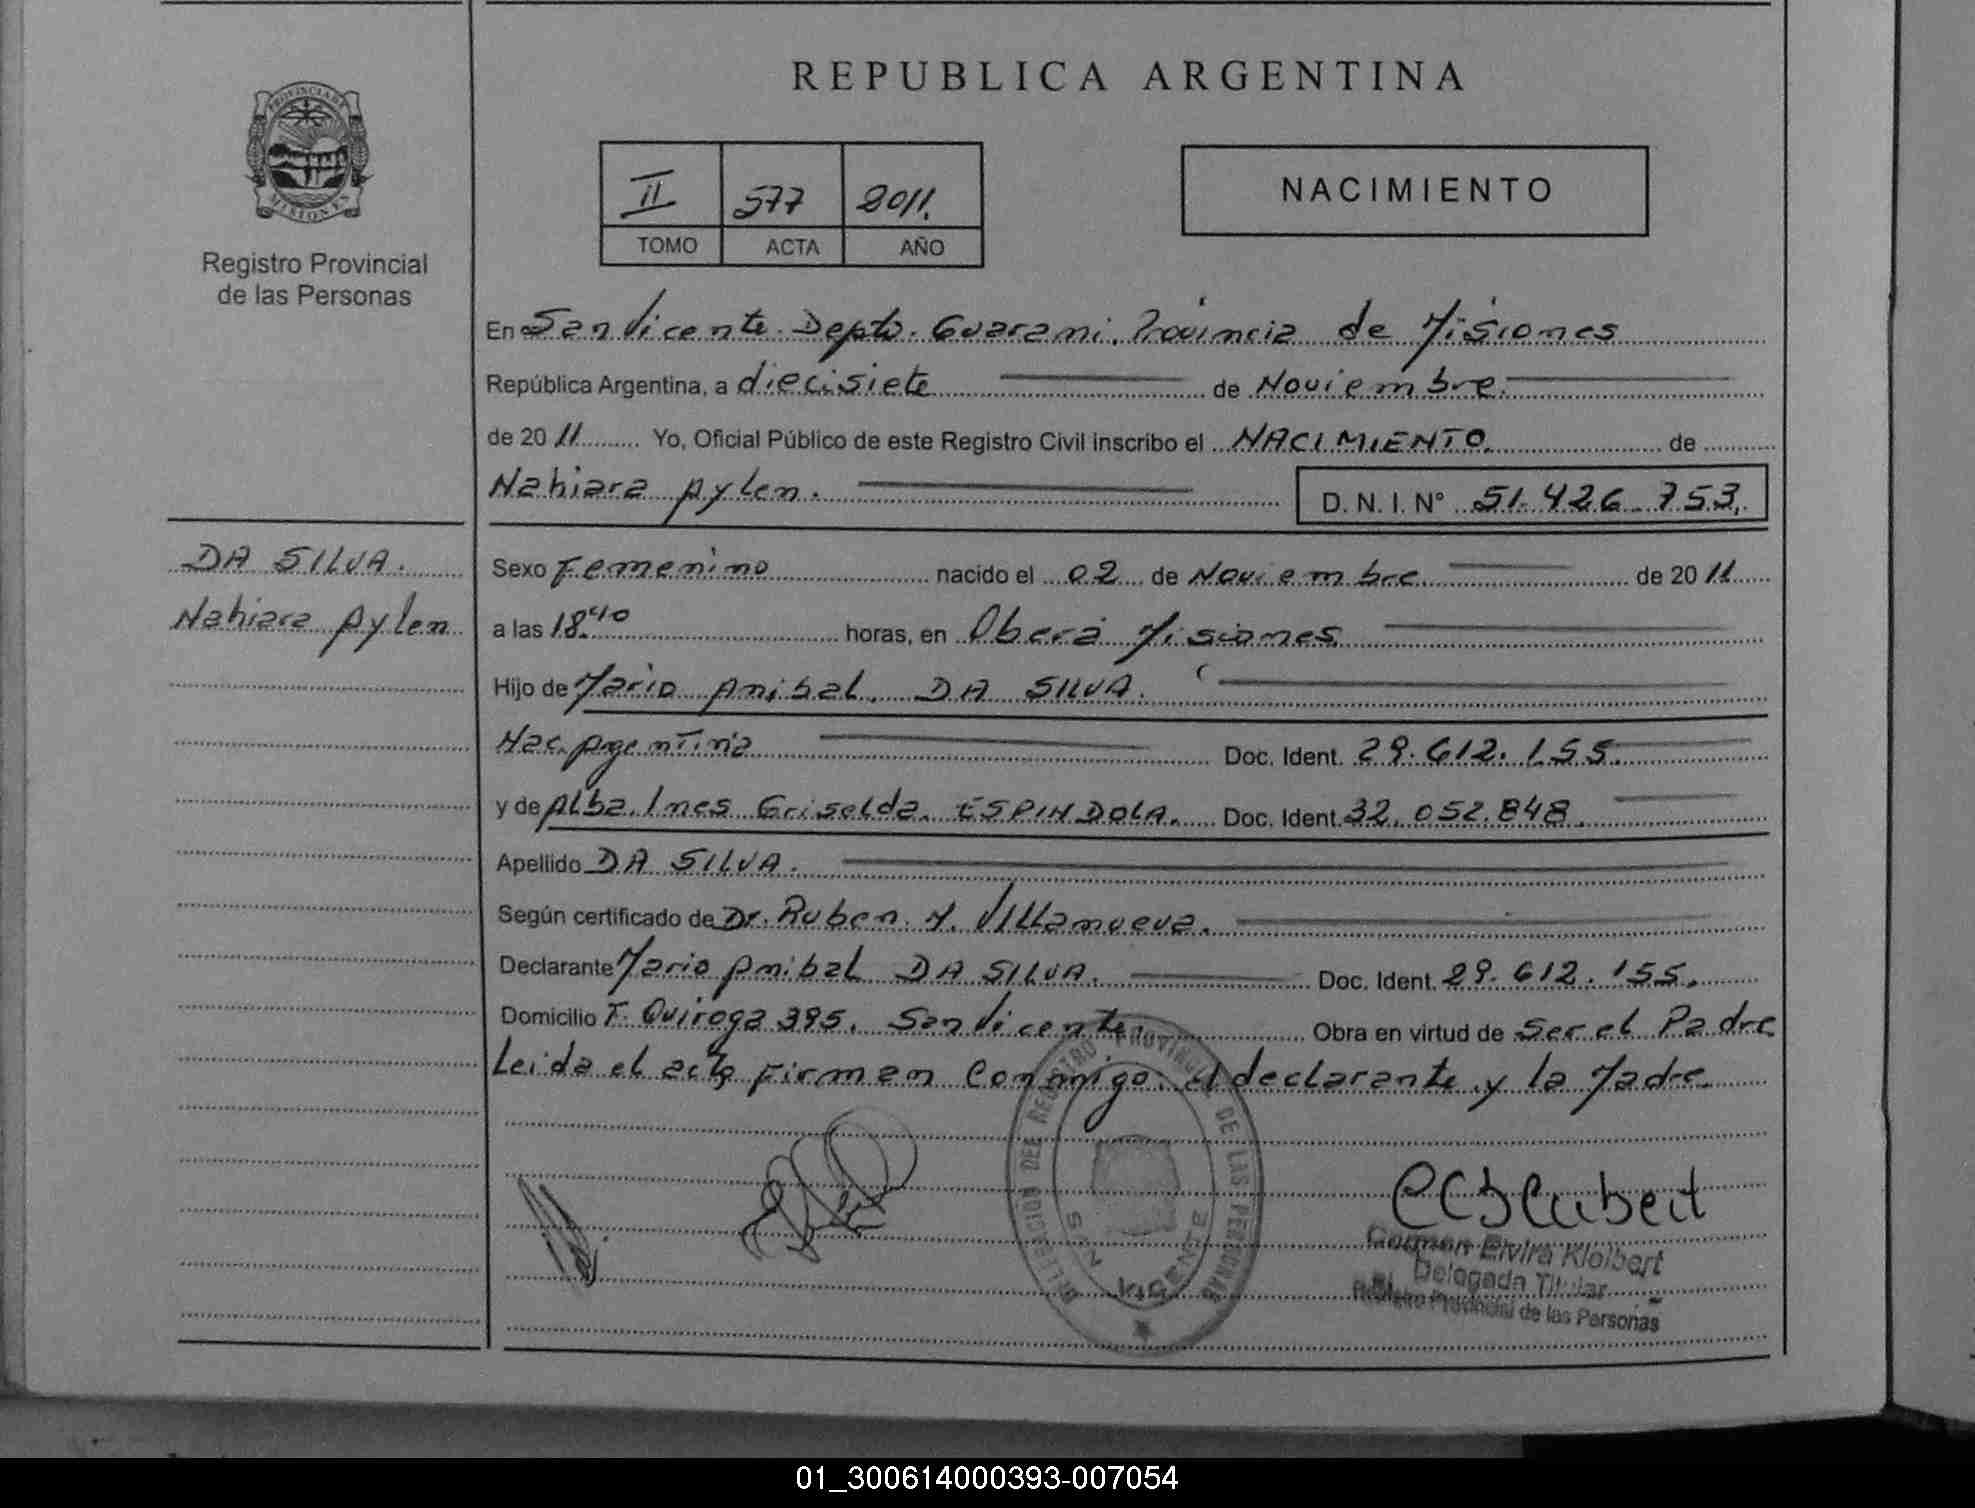 REPUBLICA ARGENTINA
PROVINCIA DE MISIONES
Registro Provincial
de las Personas
II 577 2011.
TOMO ACTA AÑO
NACIMIENTO
En San Vicente. Depto. Guarani. Provincia de Misiones
República Argentina, a diecisiete de Noviembre.
de 20 11 Yo, Oficial Público de este Registro Civil inscribo el NACIMIENTO. de
Nahiara Aylen. D. N. I. N° 51.426.753.
DA SILVA.
Nahiara Aylen
Sexo Femenino nacido el 02 de Noviembre de 20 11
a las 18.40 horas, en Oberá Misiones
Hijo de Mario Anibal. DA SILVA.
Nac. Argentina Doc. Ident. 29.612.155.
y de Alba. Ines Griselda. ESPINDOLA. Doc. Ident. 32.052.848.
Apellido DA SILVA.
Según certificado de Dr. Ruben. M. Villanueva.
Declarante Mario Anibal DA SILVA. Doc. Ident. 29.612.155.
Domicilio F. Quiroga 395. San Vicente. Obra en virtud de Ser el Padre
Leida el acta Firman Conmigo. el declarante y la Madre.
DELEGACIÓN DEL REGISTRO PROVINCIAL DE LAS PERSONAS
SAN VICENTE
Carmen Elvira Kloibert
Delegada Titular
Registro Provincial de las Personas
01_300614000393-007054